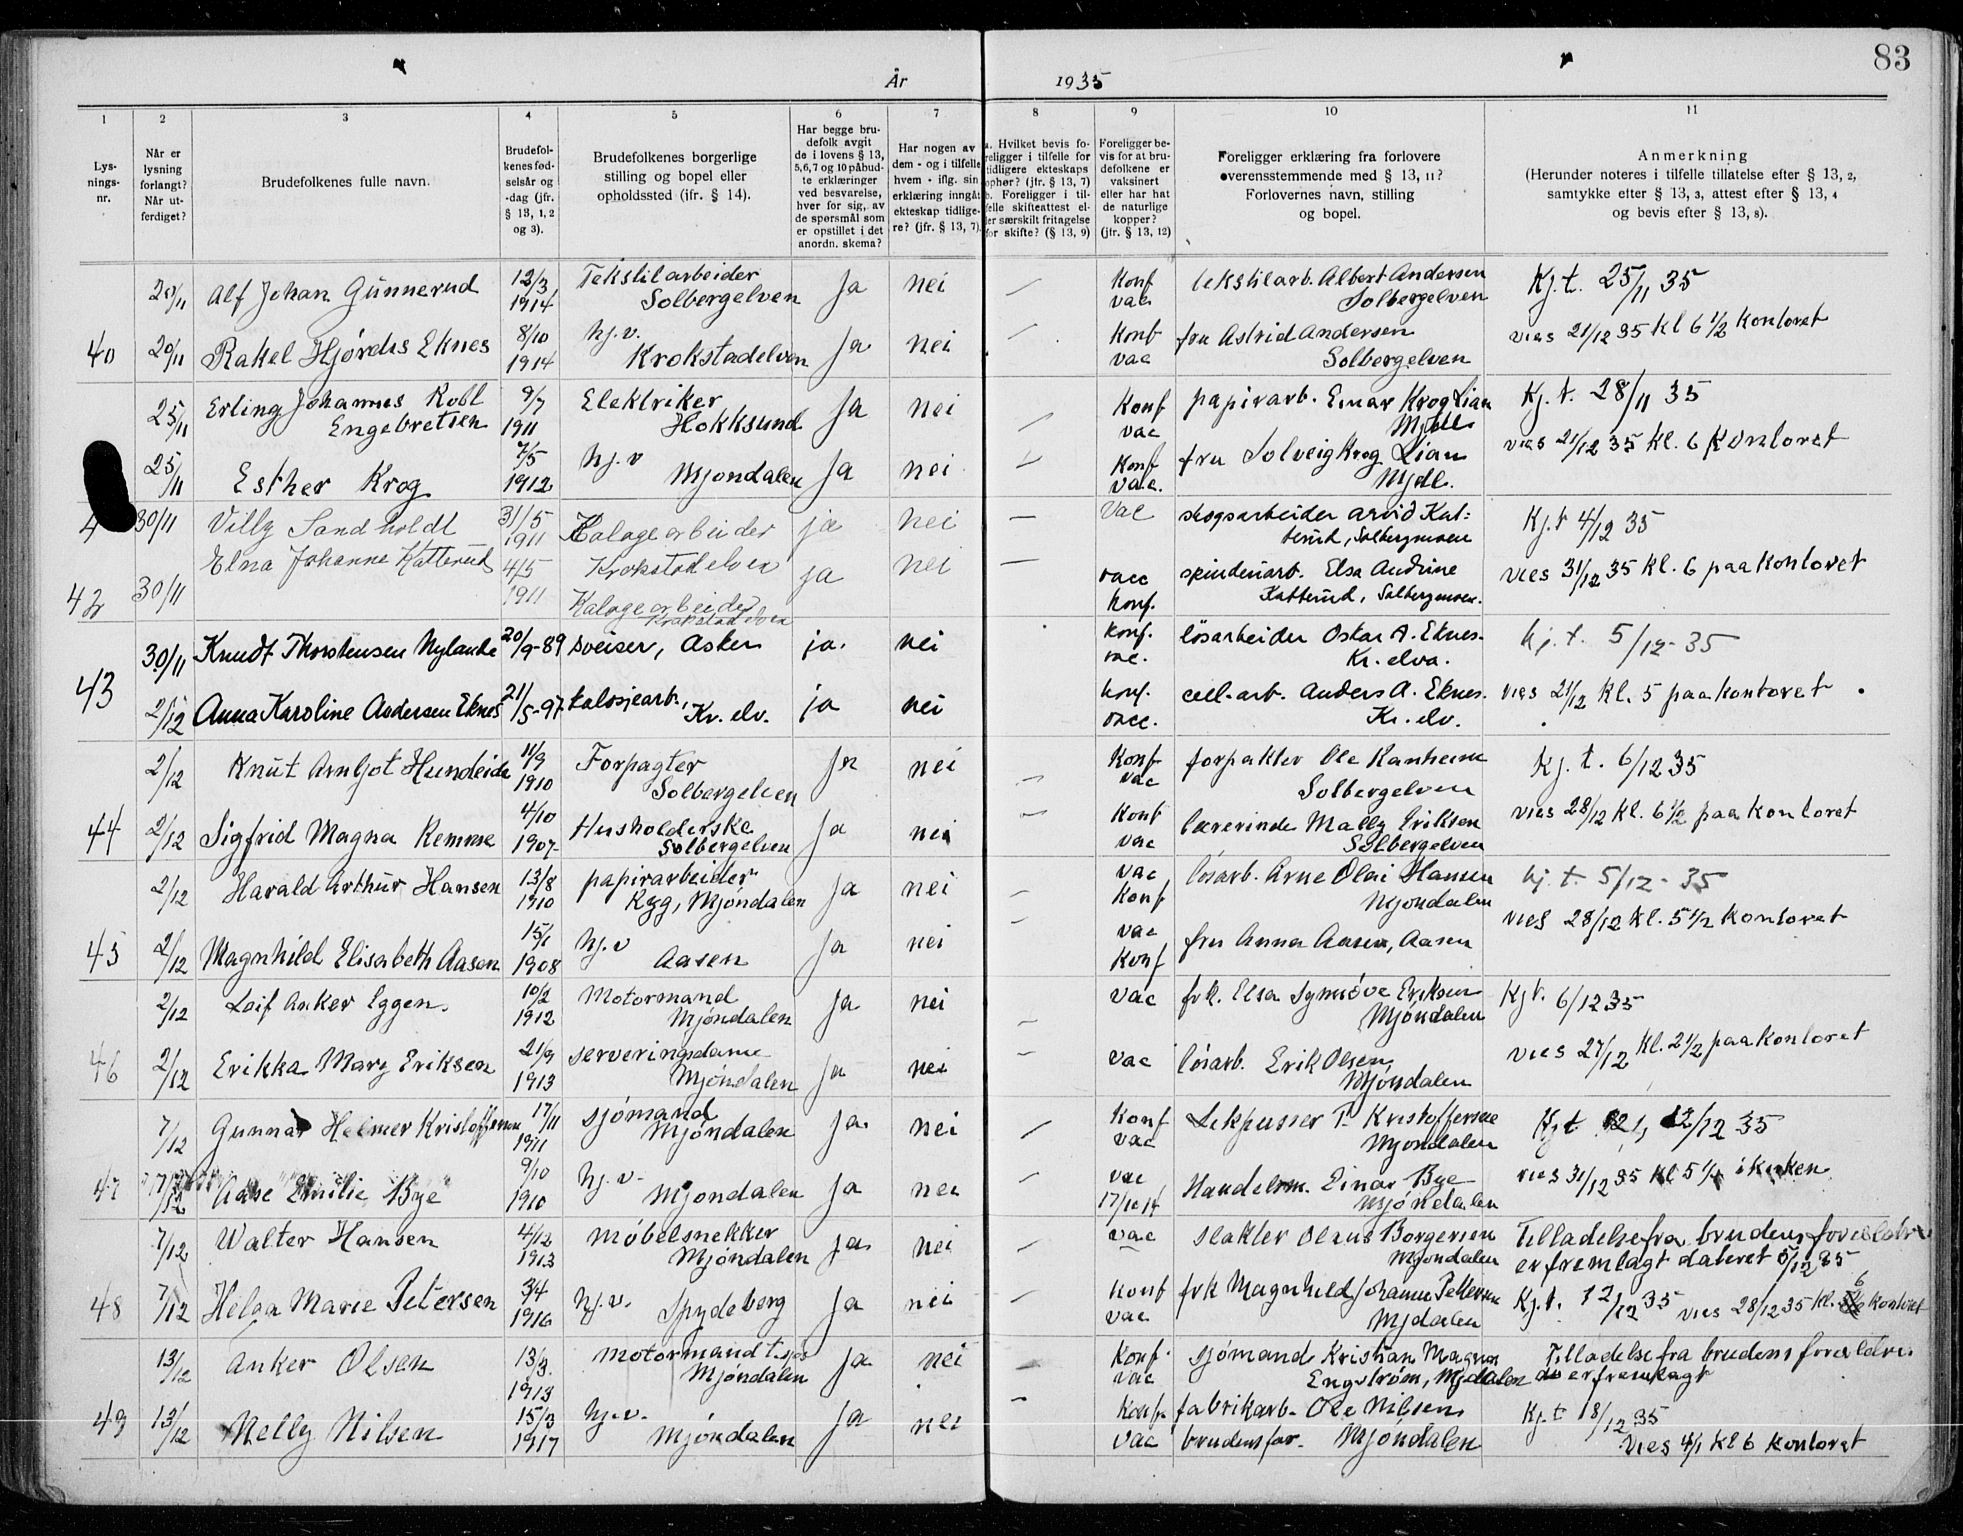 83
År 1935
1 2 3 4 5 6 7 8 9 10 11
Lys-
nings-
nr.
Når er
lysning
forlangt?
Når ut-
ferdiget?
Brudefolkenes fulle navn.
Brudefol-
kenes fød-
selsår og
-dag (jfr.
§ 13, 1, 2
og 3).
Brudefolkenes borgerlige
stilling og bopel eller
opholdssted (jfr. § 14).
Har begge bru-
defolk avgit
de i lovens § 13,
5,6,7 og 10 påbud-
te erklæringer
ved besvarelse,
hver for sig, av
de spørsmål som
er opstillet i det
anordn. skema?
Har nogen av
dem - og i tilfelle
hvem - iflg. sin
erklæring inngåt
ekteskap tidlige-
re? (jfr. § 13, 7).
a. Hvilket bevis fo-
religger i tilfelle for
tidligere ekteskaps
ophør? (jfr. § 13, 7)
b. Foreligger i til-
felle skifteattest el-
ler særskilt fritagelse
for skifte? (§ 13, 9)
Foreligger be-
vis for at bru-
defolkene er
vaksinert
eller har hat
de naturlige
kopper?
(jfr. § 13, 12)
Foreligger erklæring fra forlovere
overensstemmende med § 13, 11?
Forlovernes navn, stilling
og bopel.
Anmerkning
(Herunder noteres i tilfelle tillatelse efter § 13, 2,
samtykke efter § 13, 3, attest efter § 13, 4
og bevis efter § 13, 8).
20/11 Alf Johan Gunnerud 12/3 1914 Tekstilarbeider Solbergelven Ja nei — Konf vac tekstilarb. Albert Andersen Solbergelven Kj.t. 25/11 35
40 20/11 Rakel Hjørdis Eknes 8/10 1914 hj.v. Krokstadelven Ja nei — Konf vac fru Astrid Andersen Solbergelven vies 21/12 35 kl 6 1/2 kontoret
25/11 Erling Johannes Robl Engebretsen 9/7 1911 Elektriker Hokksund Ja nei — Konf vac papirarb. Einar Krog Lian Mjdl. Kj.t. 28/11 35
25/11 Esther Krog 7/5 1912 hj.v Mjøndalen Ja nei — Konf vac. fru Solveig Krog Lian Mjdl. vies 21/12 35 kl. 6 Kontoret
4 30/11 Villy Sandholdt 31/5 1911 Kalogearbeider ja nei — Vac skogsarbeider Arvid Kat=
terud, Solbergmoen Kj.t 4/12 35
42 30/11 Elna Johanne Katterud 4/5 1911 Krokstadelven Kalogearbeider Krokstadelven ja nei — vacc konf. spinderiarb. Elsa Andrine Katterud, Solbergmoen. vies 31/12 35 kl. 6 paa kontoret
30/11 Knudt Thorstensen Nylande 20/9-89 sveiser, Asker ja. nei konf. vac. løsarbeider Oskar A. Eknes. Kr. elva. kj.t. 5/12-35
43 2/12 Anna Karoline Andersen Eknes 21/5-97 kalosjearb., Kr. elv. ja nei konf. vacc. cell.arb. Anders A. Eknes. Kr. elv. vies 21/12 kl. 5 paa kontoret
2/12 Knut Arnljot Hundeide 11/9 1910 Forpagter Solbergelven Ja nei — Konf vac forpakter Ole Ranheim Solbergelven Kj.t. 6/12 35
44 2/12 Sigfrid Magna Remme 4/10 1907- Husholderske Solbergelven Ja nei — Konf vac lærerinde Mally Eriksen Solbergelven vies 28/12 kl. 6 1/2 paa kontoret
2/12 Harald Arthur Hansen 13/8 1910 papirarbeider Ryg, Mjøndalen Ja nei — vac Konf løsarb. Arne Olai Hansen Mjøndalen kj.t. 5/12-35
45 2/12 Magnhild Elisabeth Aasen 15/1 1908 hj.v Aasen Ja nei — vac Konf fru Anna Aasen, Aasen vies 28/12 kl. 5 1/2 kontoret
2/12 Leif Anker Eggen. 10/2 1912 Motormand Mjøndalen Ja nei — vac frk. Elsa Synnøve Eriksen Mjøndalen Kj.t. 6/12 35
46 2/12 Erikka Mary Eriksen 21/9 1913 serveringsdame Mjøndalen Ja nei — vac løsarb. Erik Olsen, Mjøndalen vies 27/12 kl. 2 1/2 paa kontoret
7/12 Gunnar Helmer Kristoffersen 17/11 1911 sjømand Mjøndalen Ja nei — Konf vac Lekpusser T. Kristoffersen Mjøndalen Kj.t 12/12 35
47 7/12 Aase Emilie Bye 9/10 1910 hj.v. Mjøndalen Ja nei — vac 17/10 14 Handelsm. Einar Bye Mjøndalen vies 31/12 35 kl 5 1/4 i kirken
7/12 Walter Hansen 4/12 1913 møbelsnekker Mjøndalen Ja nei — vac slakter Olaus Borgersen Mjøndalen Tilladelse fra brudens foreldre
er fremlagt dateret 5/12 35
48 7/12 Helga Marie Petersen 3/4 1916 hj.v. Spydeberg Ja nei — Konf vac frk Magnhild Johanne Pettersen Mjdalen Kj.t. 12/12 35 vies 28/12 35 kl. 6 kontoret
13/12 Anker Olsen 13/3. 1913 Motormand t.sjøs Mjøndalen Ja nei — Konf vac sjømand Kristian Magnus Engstrøm, Mjdalen Tilladelse fra brudens foreldre
er fremlagt
49 13/12 Nelly Nilsen 15/3 1917 hj.v. Mjøndalen Ja nei — Konf. vac fabrikarb. Ole Nilsen, brudens far. Mjøndalen Kj.t 18/12 35
vies 4/1 kl 6 kontoret